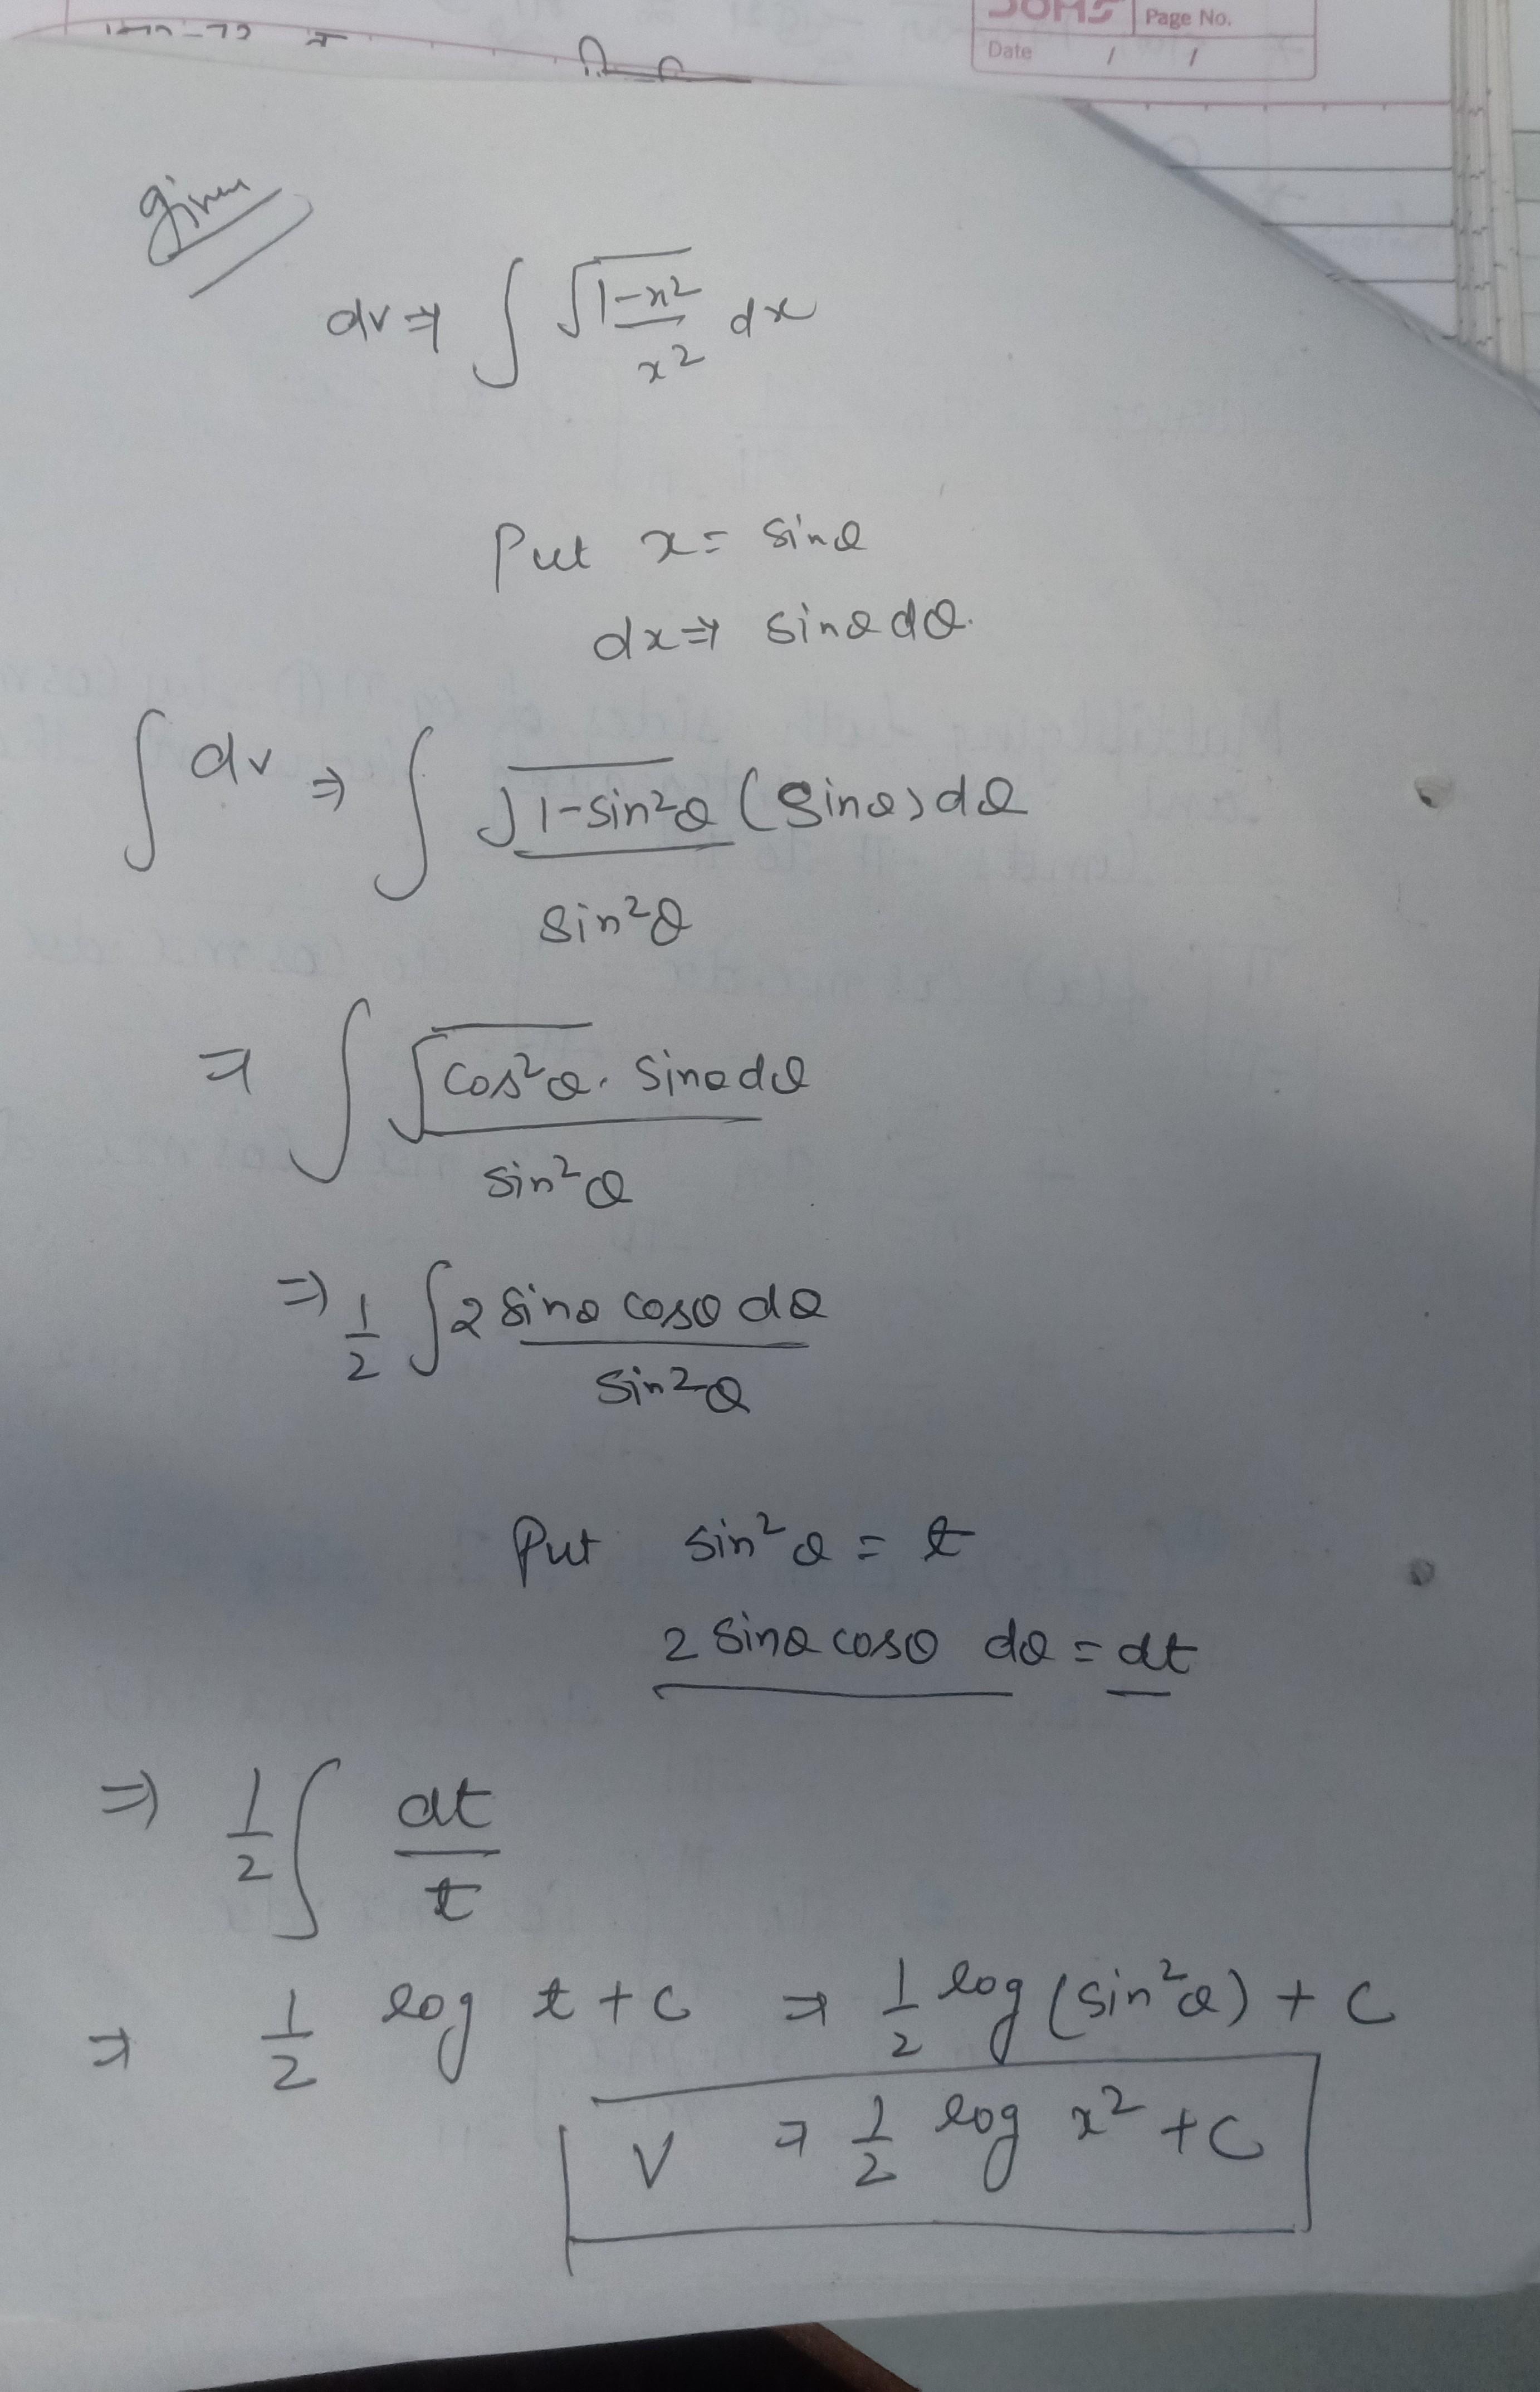 SOHS Page No.
Date / /
given
dv ⇒ ∫ √1-x² / x² dx
Put x = sinθ
dx ⇒ sinθ dθ.
∫ dv ⇒ ∫ √1-sin²θ (sinθ) dθ / sin²θ
⇒ ∫ √cos²θ . sinθ dθ / sin²θ
⇒ 1/2 ∫ 2 sinθ cosθ dθ / sin²θ
Put sin²θ = t
2 sinθ cosθ dθ = dt
⇒ 1/2 ∫ dt / t
⇒ 1/2 log t + c ⇒ 1/2 log (sin²θ) + c
V ⇒ 1/2 log x² + c